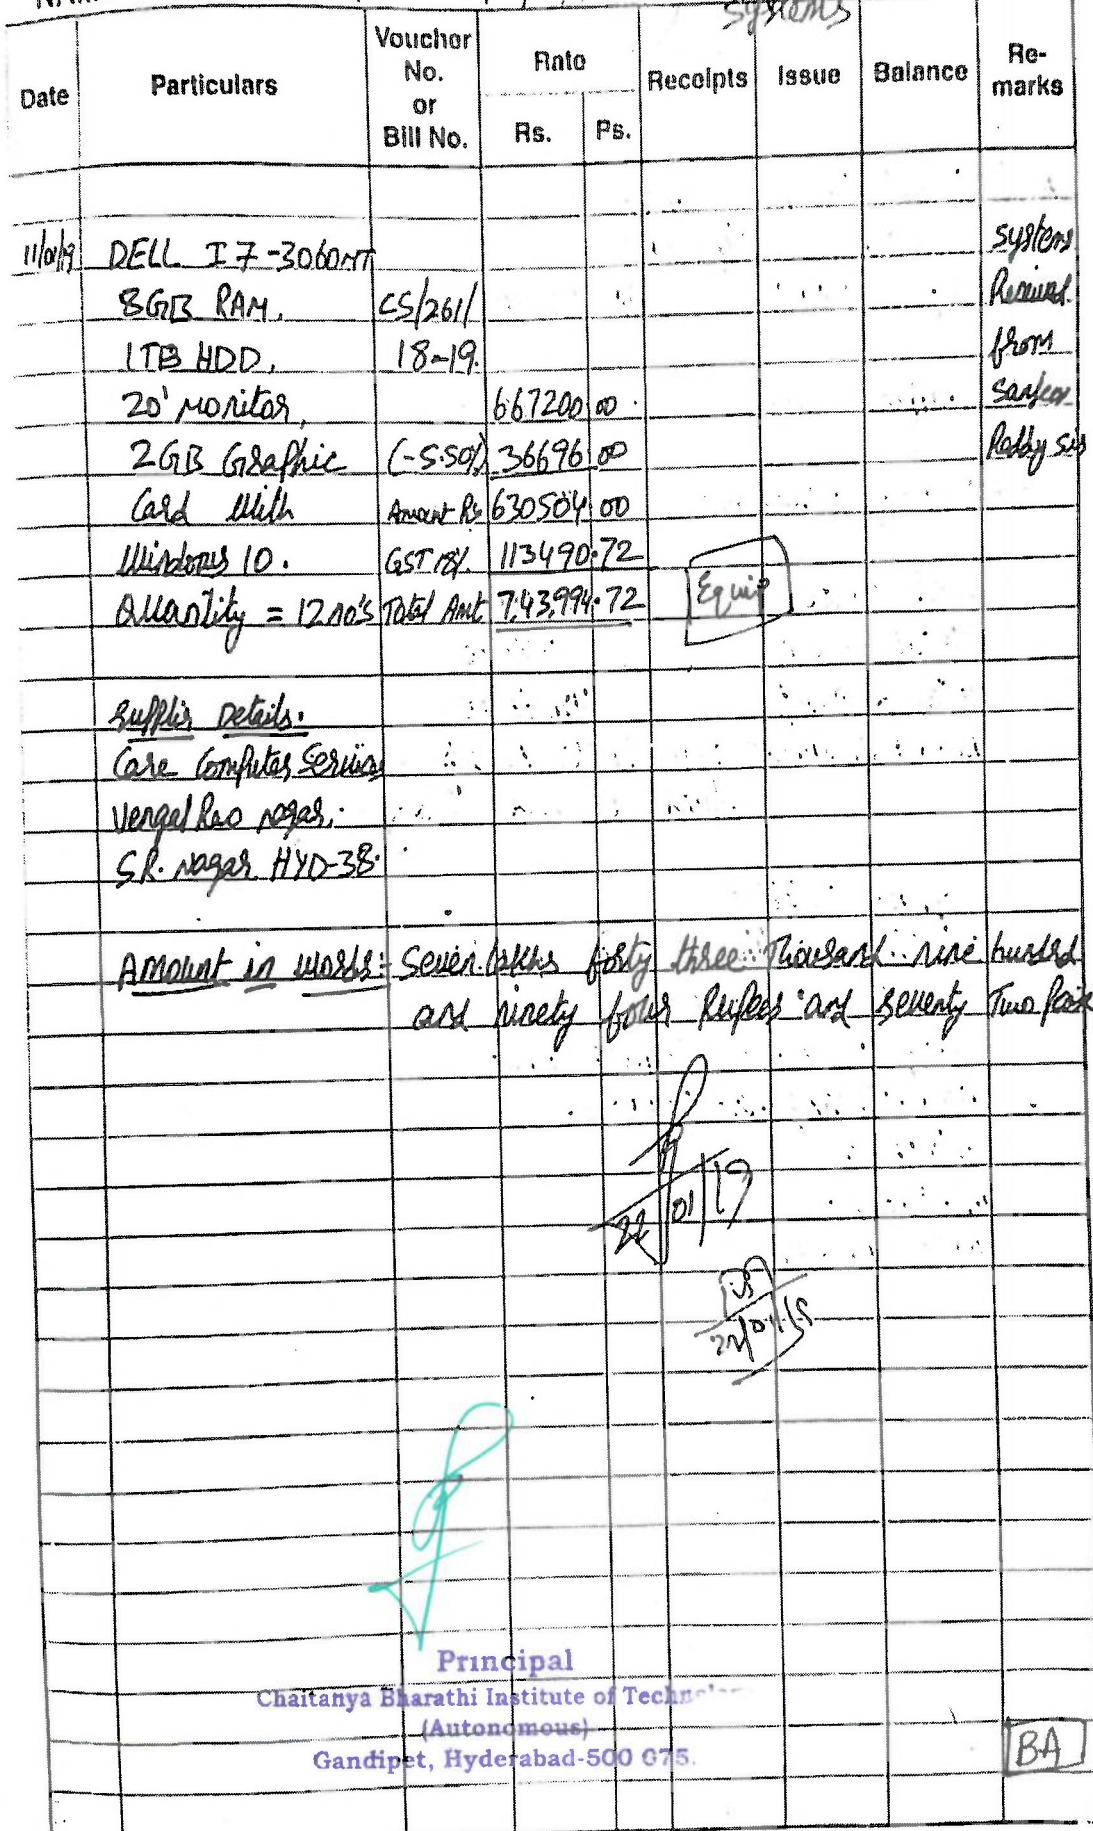 systems
Date Particulars Voucher No. or Bill No. Rate Rs. Ps. Receipts Issue Balance Re-marks
11/01/19 DELL I7-3060MT systems
8GB RAM, CS/261/ Received
1TB HDD, 18-19. from
20' Monitor, 667200 00
2GB Graphic (-5.50%) 36696 00 Reddy sir
Card With Amount Rs 630504 00
Windows 10. GST 18% 113490.72
Quantity = 12 no's Total Amt 7,43,994.72 Equip
Supplier Details.
Care Computer Services
Vengal Rao nagar,
S.R. nagar HYD-38.
Amount in words:- Seven lakhs forty three Thousand nine hundred
and ninety four Rupees and seventy Two Paise
22/01/19
Principal
Chaitanya Bharathi Institute of
(Autonomous)
Gandipet, Hyderabad-500 075.
BA